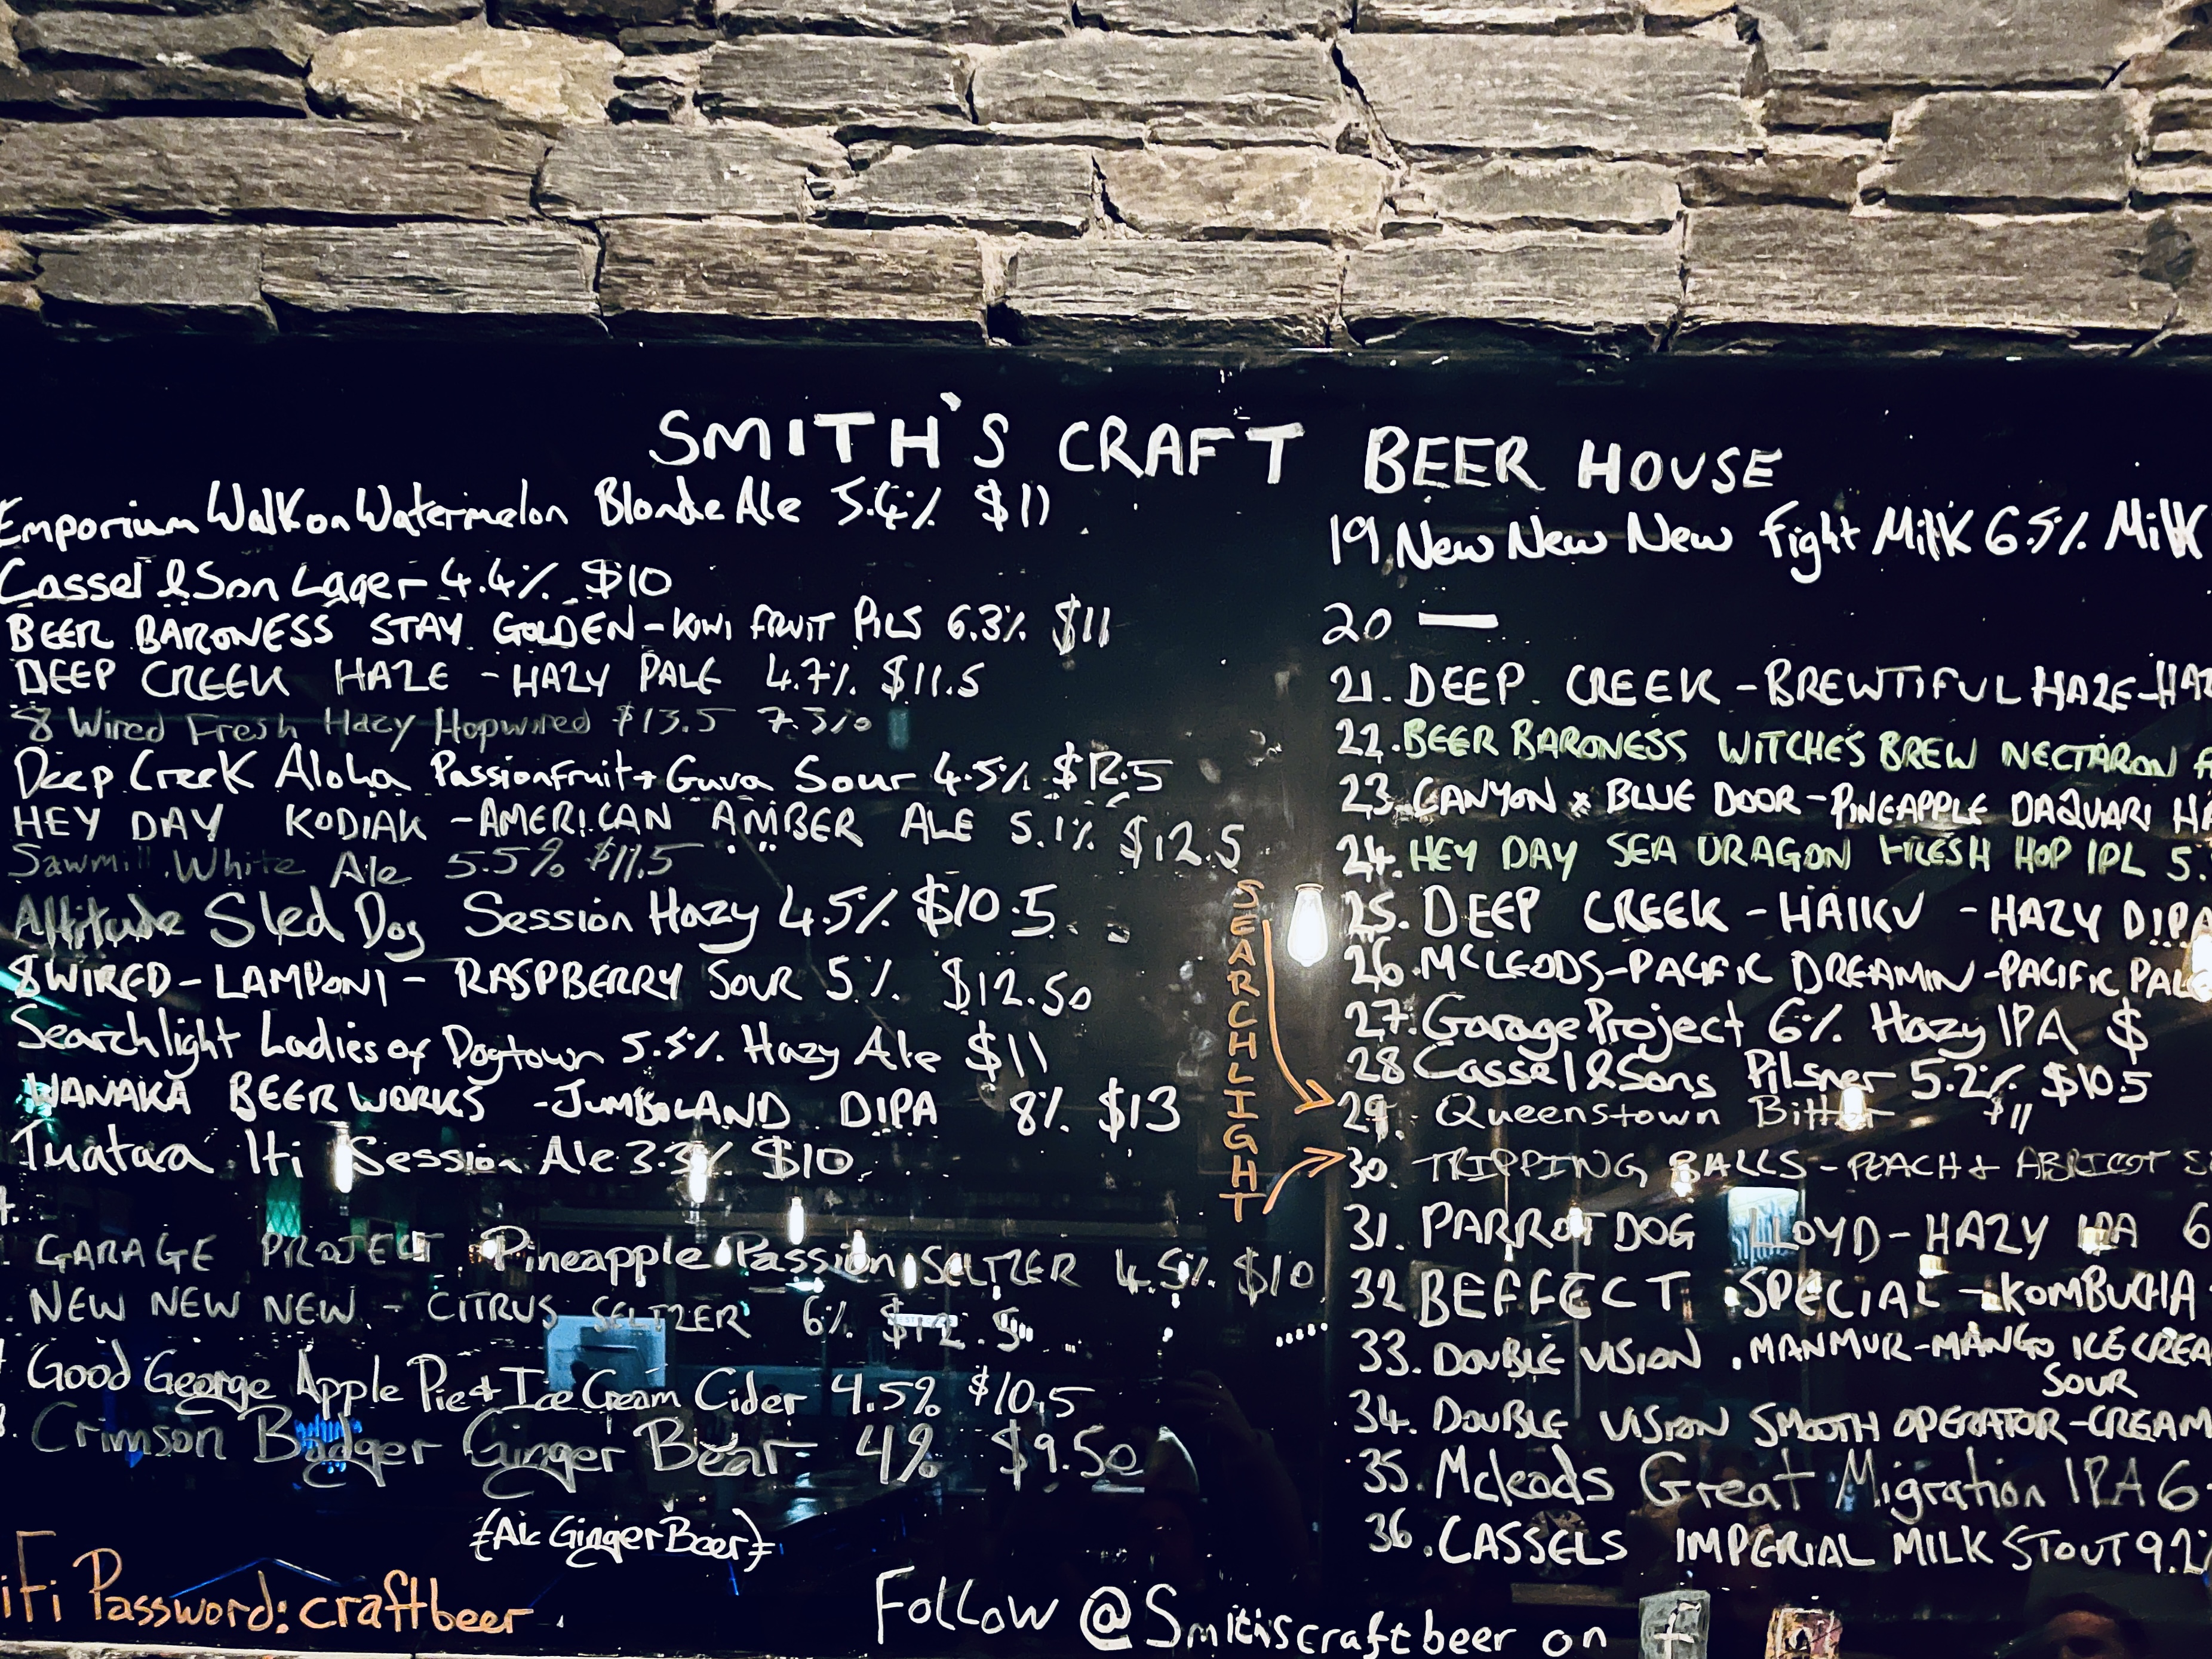 SMITH'S CRAFT BEER HOUSE
Emporium Walk on Watermelon Blonde Ale 5.4% $11
Cassel & Son Lager - 4.4% $10
BEER BARONESS STAY GOLDEN - KIWI FRUIT PILS 6.3% $11
DEEP CREEK HAZE - HAZY PALE 4.7% $11.5
8 Wired Fresh Hazy Hopwired $13.5 7.3%
Deep Creek Aloha Passionfruit + Guva Sour 4.5% $12.5
HEY DAY KODIAK - AMERICAN AMBER ALE 5.1% $12.5
Sawmill White Ale 5.5% $11.5
Altitude Sled Dog Session Hazy 4.5% $10.5
8 WIRED - LAMPONI - RASPBERRY SOUR 5% $12.50
Searchlight Ladies of Dogtown 5.5% Hazy Ale $11
WANAKA BEER WORKS - JUMBOLAND DIPA 8% $13
Tuatara Iti Session Ale 3.3% $10
GARAGE PROJECT Pineapple Passion SELTZER 4.5% $10
NEW NEW NEW - CITRUS SELTZER 6% $12.5
Good George Apple Pie + Ice Cream Cider 4.5% $10.5
Crimson Badger Ginger Bear 4% $9.50
(Alc Ginger Beer)
iFi Password: craftbeer
SEARCHLIGHT
19. New New New Fight Milk 6.5% Milk
20 —
21. DEEP CREEK - BREWTIFUL HAZE - HAZ
22. BEER BARONESS WITCHES BREW NECTARON
23. CANYON x BLUE DOOR - PINEAPPLE DAQUARI HA
24. HEY DAY SEA DRAGON FRESH HOP IPL 5.
25. DEEP CREEK - HAIKU - HAZY DIPA
26. MCLEODS - PACIFIC DREAMIN - PACIFIC PALE
27. Garage Project 6% Hazy IPA $
28. Cassel & Sons Pilsner 5.2% $10.5
29. Queenstown Bitter $11
30. TRIPPING BALLS - PEACH & ABRICOT S
31. PARROTDOG LLOYD - HAZY IPA 6
32 BEFFECT SPECIAL - KOMBUCHA
33. DOUBLE VISION MANMUR - MANGO ICE CREA
SOUR
34. DOUBLE VISION SMOOTH OPERATOR - CREAM
35. Mcleods Great Migration IPA 6
36. CASSELS IMPERIAL MILK STOUT 9.2%
Follow @Smithscraftbeer on f